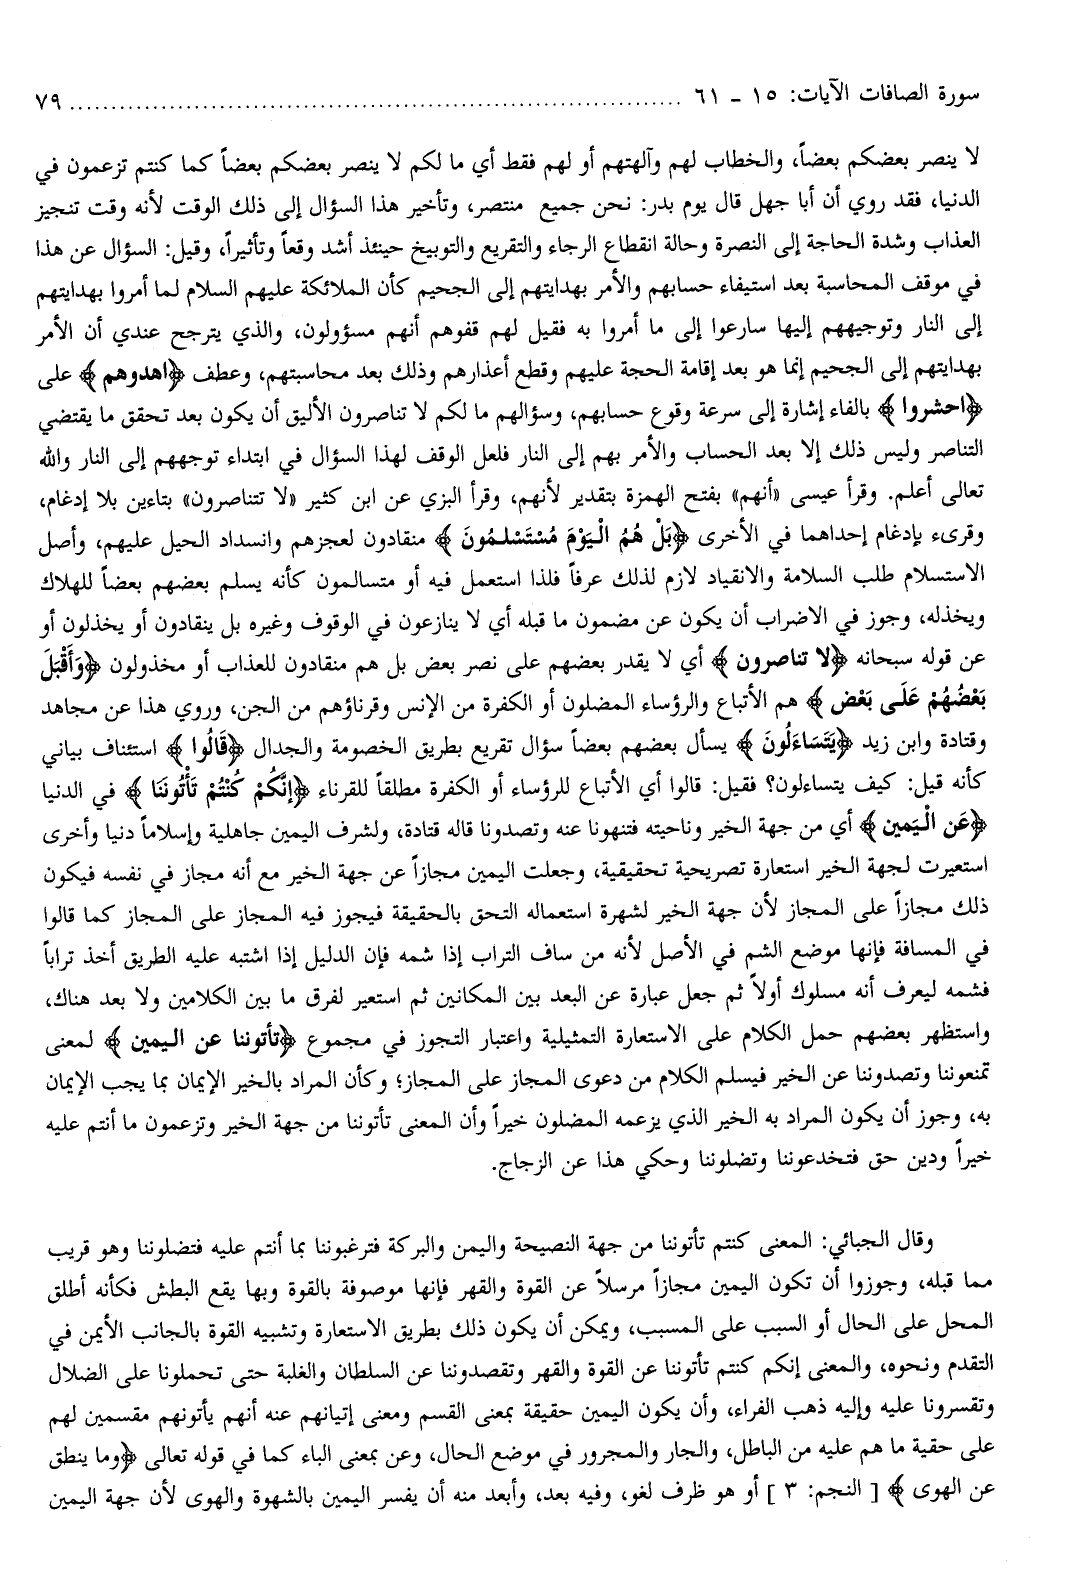 سورة الصافات الآيات: ١٥ - ٦١ ........................................ ٧٩
لا ينصر بعضكم بعضاً، والخطاب لهم وآلهتهم أو لهم فقط أي ما لكم لا ينصر بعضكم بعضاً كما كنتم تزعمون في
الدنيا، فقد روي أن أبا جهل قال يوم بدر: نحن جميع منتصر، وتأخير هذا السؤال إلى ذلك الوقت لأنه وقت تنجيز
العذاب وشدة الحاجة إلى النصرة وحالة انقطاع الرجاء والتقريع والتوبيخ حينئذ أشد وقعاً وتأثيراً، وقيل: السؤال عن هذا
في موقف المحاسبة بعد استيفاء حسابهم والأمر بهدايتهم إلى الجحيم كأن الملائكة عليهم السلام لما أمروا بهدايتهم
إلى النار وتوجيههم إليها سارعوا إلى ما أمروا به فقيل لهم قفوهم أنهم مسؤولون، والذي يترجح عندي أن الأمر
بهدايتهم إلى الجحيم إنما هو بعد إقامة الحجة عليهم وقطع أعذارهم وذلك بعد محاسبتهم، وعطف ﴿اهدوهم﴾ على
﴿احشروا﴾ بالفاء إشارة إلى سرعة وقوع حسابهم، وسؤالهم ما لكم لا تناصرون الأليق أن يكون بعد تحقق ما يقتضي
التناصر وليس ذلك إلا بعد الحساب والأمر بهم إلى النار فلعل الوقف لهذا السؤال في ابتداء توجههم إلى النار والله
تعالى أعلم. وقرأ عيسى «أنهم» بفتح الهمزة بتقدير لأنهم، وقرأ البزي عن ابن كثير «لا تتناصرون» بتاءين بلا إدغام،
وقرىء بإدغام إحداهما في الأخرى ﴿بَلْ هُمُ الْيَوْمَ مُسْتَسْلِمُونَ﴾ منقادون لعجزهم وانسداد الحيل عليهم، وأصل
الاستسلام طلب السلامة والانقياد لازم لذلك عرفاً فلذا استعمل فيه أو متسالمون كأنه يسلم بعضهم بعضاً للهلاك
ويخذله، وجوز في الاضراب أن يكون عن مضمون ما قبله أي لا ينازعون في الوقوف وغيره بل ينقادون أو يخذلون أو
عن قوله سبحانه ﴿لا تناصرون﴾ أي لا يقدر بعضهم على نصر بعض بل هم منقادون للعذاب أو مخذولون ﴿وَأَقْبَلَ
بَعْضُهُمْ عَلَى بَعْضٍ﴾ هم الأتباع والرؤساء المضلون أو الكفرة من الإنس وقرناؤهم من الجن، وروي هذا عن مجاهد
وقتادة وابن زيد ﴿يَتَسَاءَلُونَ﴾ يسأل بعضهم بعضاً سؤال تقريع بطريق الخصومة والجدال ﴿قَالُوا﴾ استئناف بياني
كأنه قيل: كيف يتساءلون؟ فقيل: قالوا أي الأتباع للرؤساء أو الكفرة مطلقاً للقرناء ﴿إِنَّكُمْ كُنْتُمْ تَأْتُونَنَا﴾ في الدنيا
﴿عَنِ الْيَمِينِ﴾ أي من جهة الخير وناحيته فتنهونا عنه وتصدونا قاله قتادة، ولشرف اليمين جاهلية وإسلاماً دنيا وأخرى
استعيرت لجهة الخير استعارة تصريحية تحقيقية، وجعلت اليمين مجازاً عن جهة الخير مع أنه مجاز في نفسه فيكون
ذلك مجازاً على المجاز لأن جهة الخير لشهرة استعماله التحق بالحقيقة فيجوز فيه المجاز على المجاز كما قالوا
في المسافة فإنها موضع الشم في الأصل لأنه من ساف التراب إذا شمه فإن الدليل إذا اشتبه عليه الطريق أخذ تراباً
فشمه ليعرف أنه مسلوك أولاً ثم جعل عبارة عن البعد بين المكانين ثم استعير لفرق ما بين الكلامين ولا بعد هناك،
واستظهر بعضهم حمل الكلام على الاستعارة التمثيلية واعتبار التجوز في مجموع ﴿تأتوننا عن اليمين﴾ لمعنى
تمنعوننا وتصدوننا عن الخير فيسلم الكلام من دعوى المجاز على المجاز؛ وكأن المراد بالخير الإيمان بما يجب الإيمان
به، وجوز أن يكون المراد به الخير الذي يزعمه المضلون خيراً وأن المعنى تأتوننا من جهة الخير وتزعمون ما أنتم عليه
خيراً ودين حق فتخدعوننا وتضلوننا وحكي هذا عن الزجاج.
وقال الجبائي: المعنى كنتم تأتوننا من جهة النصيحة واليمن والبركة فترغبوننا بما أنتم عليه فتضلوننا وهو قريب
مما قبله، وجوزوا أن تكون اليمين مجازاً مرسلاً عن القوة والقهر فإنها موصوفة بالقوة وبها يقع البطش فكأنه أطلق
المحل على الحال أو السبب على المسبب، ويمكن أن يكون ذلك بطريق الاستعارة وتشبيه القوة بالجانب الأيمن في
التقدم ونحوه، والمعنى إنكم كنتم تأتوننا عن القوة والقهر وتقصدوننا عن السلطان والغلبة حتى تحملونا على الضلال
وتقسرونا عليه وإليه ذهب الفراء، وأن يكون اليمين حقيقة بمعنى القسم ومعنى إتيانهم عنه أنهم يأتونهم مقسمين لهم
على حقية ما هم عليه من الباطل، والجار والمجرور في موضع الحال، وعن بمعنى الباء كما في قوله تعالى ﴿وما ينطق
عن الهوى﴾ [ النجم: ٣ ] أو هو ظرف لغو، وفيه بعد، وأبعد منه أن يفسر اليمين بالشهوة والهوى لأن جهة اليمين